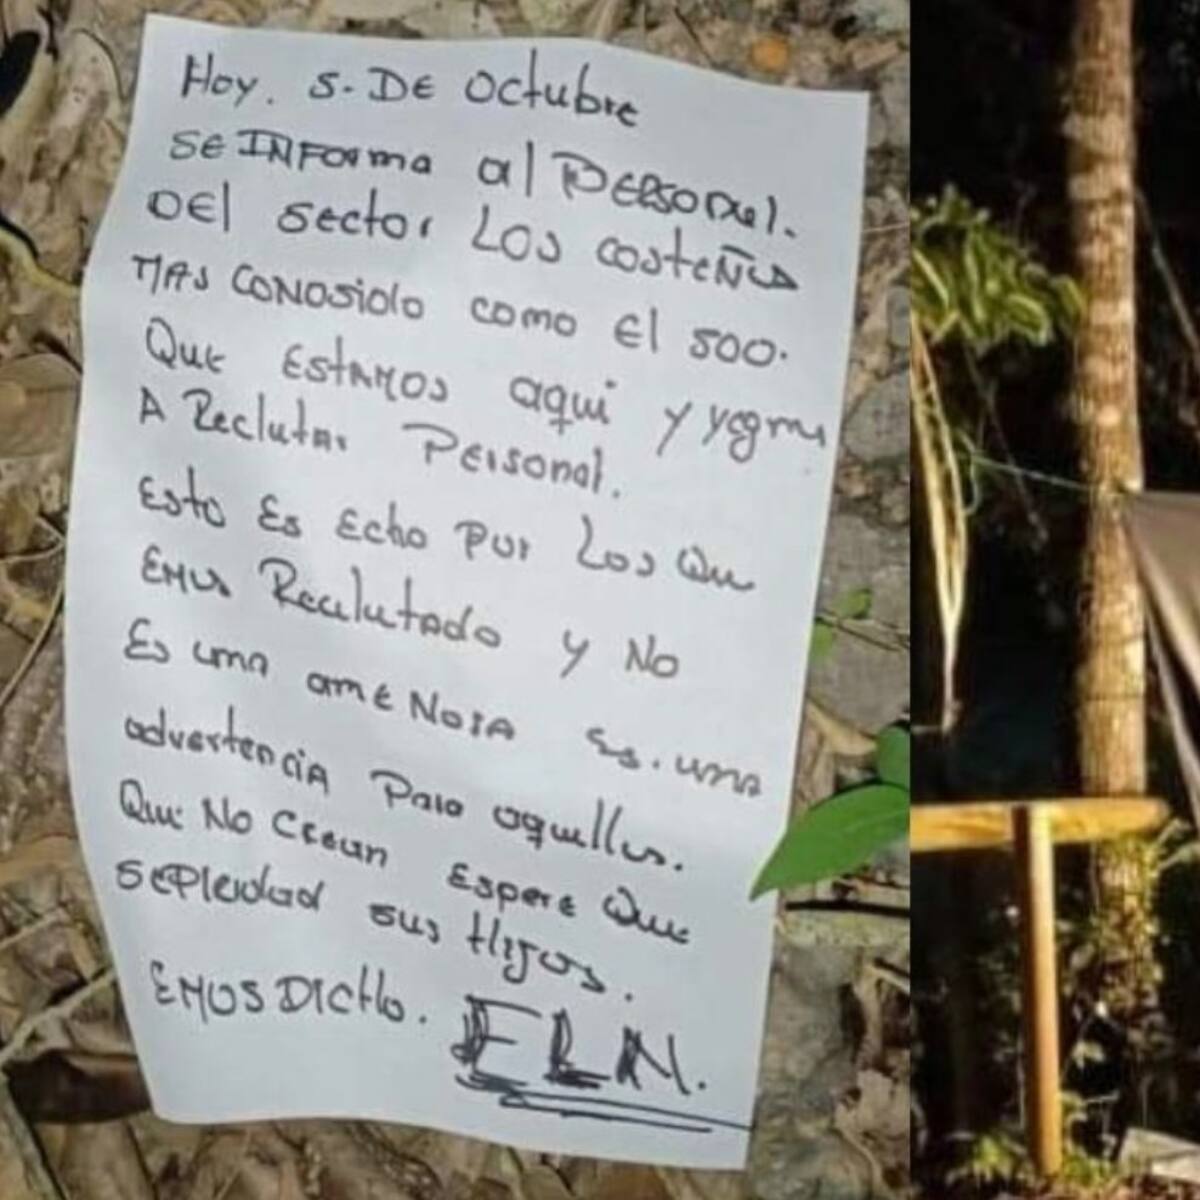 Hoy. 5. DE Octubre
SE INForma al PERSonal.
DEl sector Los costeÑus
MAS CONOSiolo como El 500.
Que EstAMOS aqui y yegmu
A Reclutar Personal.
Esto Es Echo Por Los Qu
EMUS Reclutado y No
Es uma amENOSA Es. uma
advertencia Para aquellus.
Que No Crean Espere Que
SEPierdad sus Hijos.
EMOS DICHo. ELN.